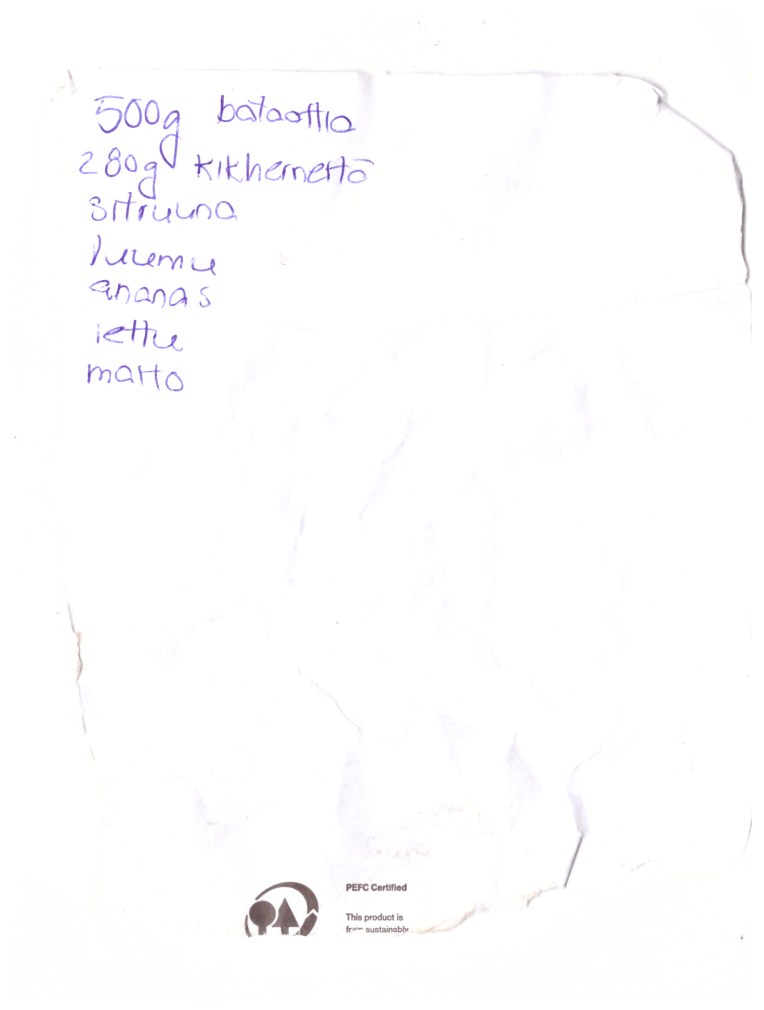 500g bataattia
280g kikhernettä
sitruuna
luumu
ananas
lettu
maito
PEFC Certified
This product is
from sustainably